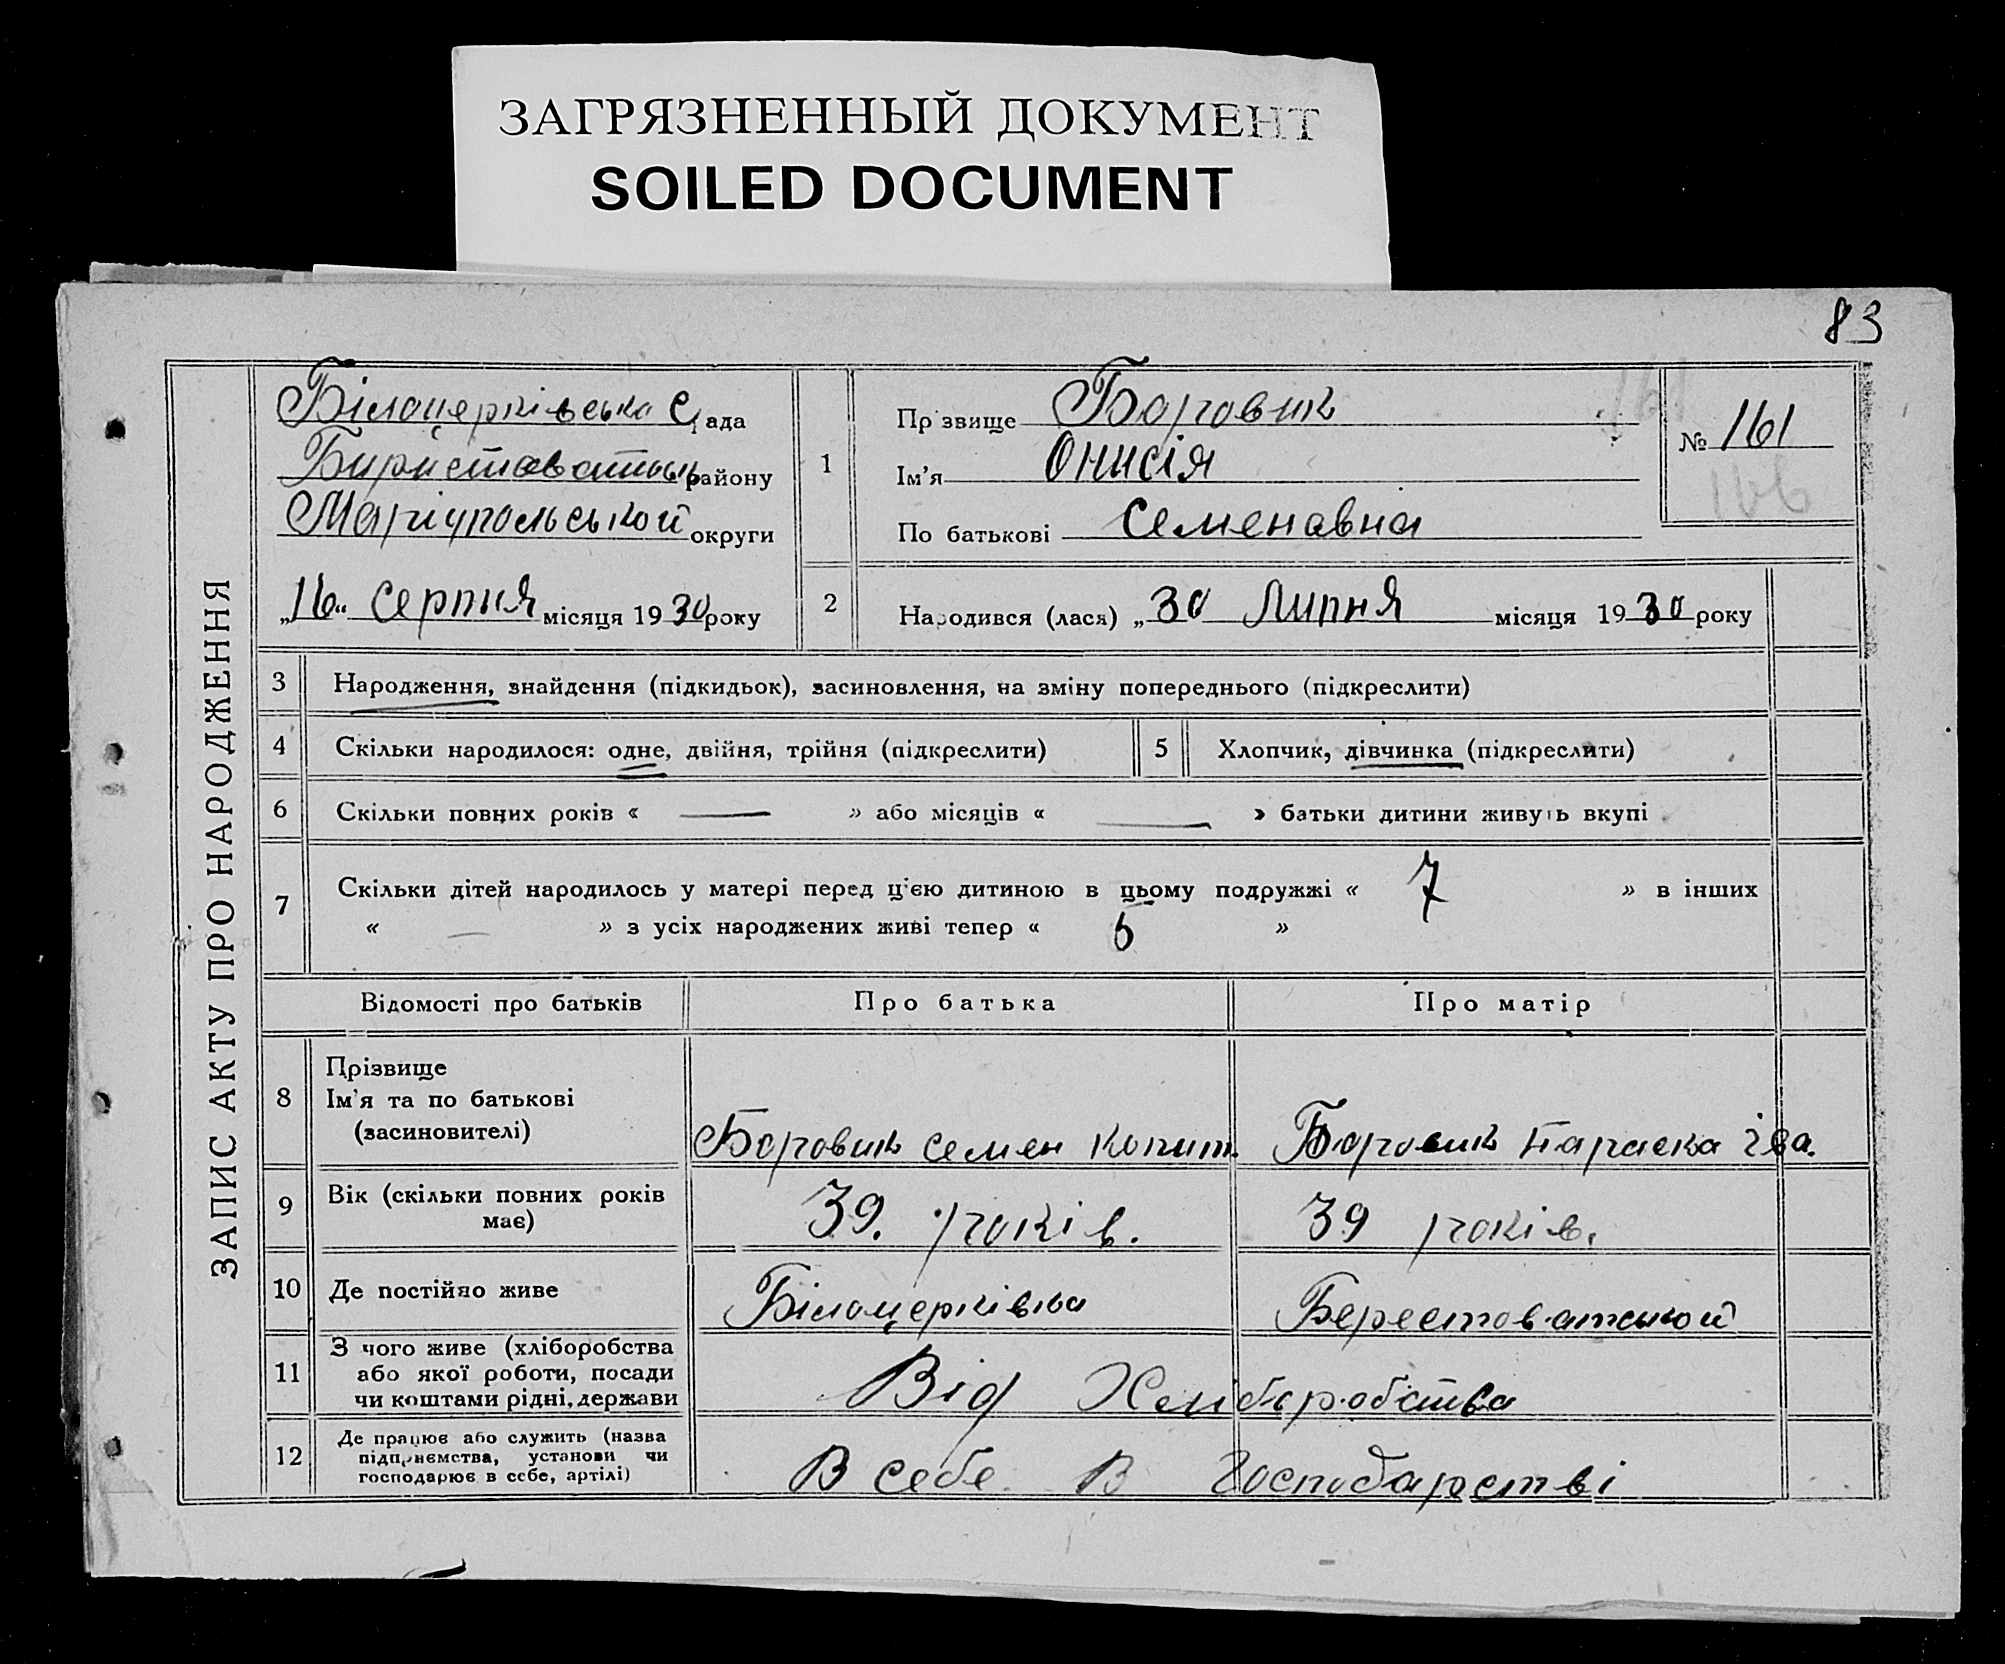 ЗАГРЯЗНЕННЫЙ ДОКУМЕНТ
SOILED DOCUMENT
83
ЗАПИС АКТУ ПРО НАРОДЖЕННЯ
Білоцерківська С рада
району
Маріупольської округи
„16" серпня місяця 1930 року
1
Прізвище Боровик
Ім'я Онисія
По батькові Семенавна
№ 161
166
2
Народився (лася) „30 Липня місяця 1930 року
3 Народження, знайдення (підкидьок), засиновлення, на зміну попереднього (підкреслити)
4 Скільки народилося: одне, двійня, трійня (підкреслити)
5 Хлопчик, дівчинка (підкреслити)
6 Скільки повних років « — » або місяців « — » батьки дитини живуть вкупі
7 Скільки дітей народилось у матері перед цією дитиною в цьому подружжі « 7 » в інших
« — » з усіх народжених живі тепер « 6 »
Відомості про батьків Про батька Про матір
8 Прізвище
Ім'я та по батькові
(засиновителі)
Боровик Семен Копит. Боровик Параска Іва.
9 Вік (скільки повних років
має)
39. років. 39 років.
10 Де постійно живе Білоцерківка Берестоватської
11 З чого живе (хліборобства
або якої роботи, посади
чи коштами рідні, держави
Від Хліборобства
12 Де працює або служить (назва
підприємства, установи чи
господарює в себе, артілі)
В себе В Господарстві